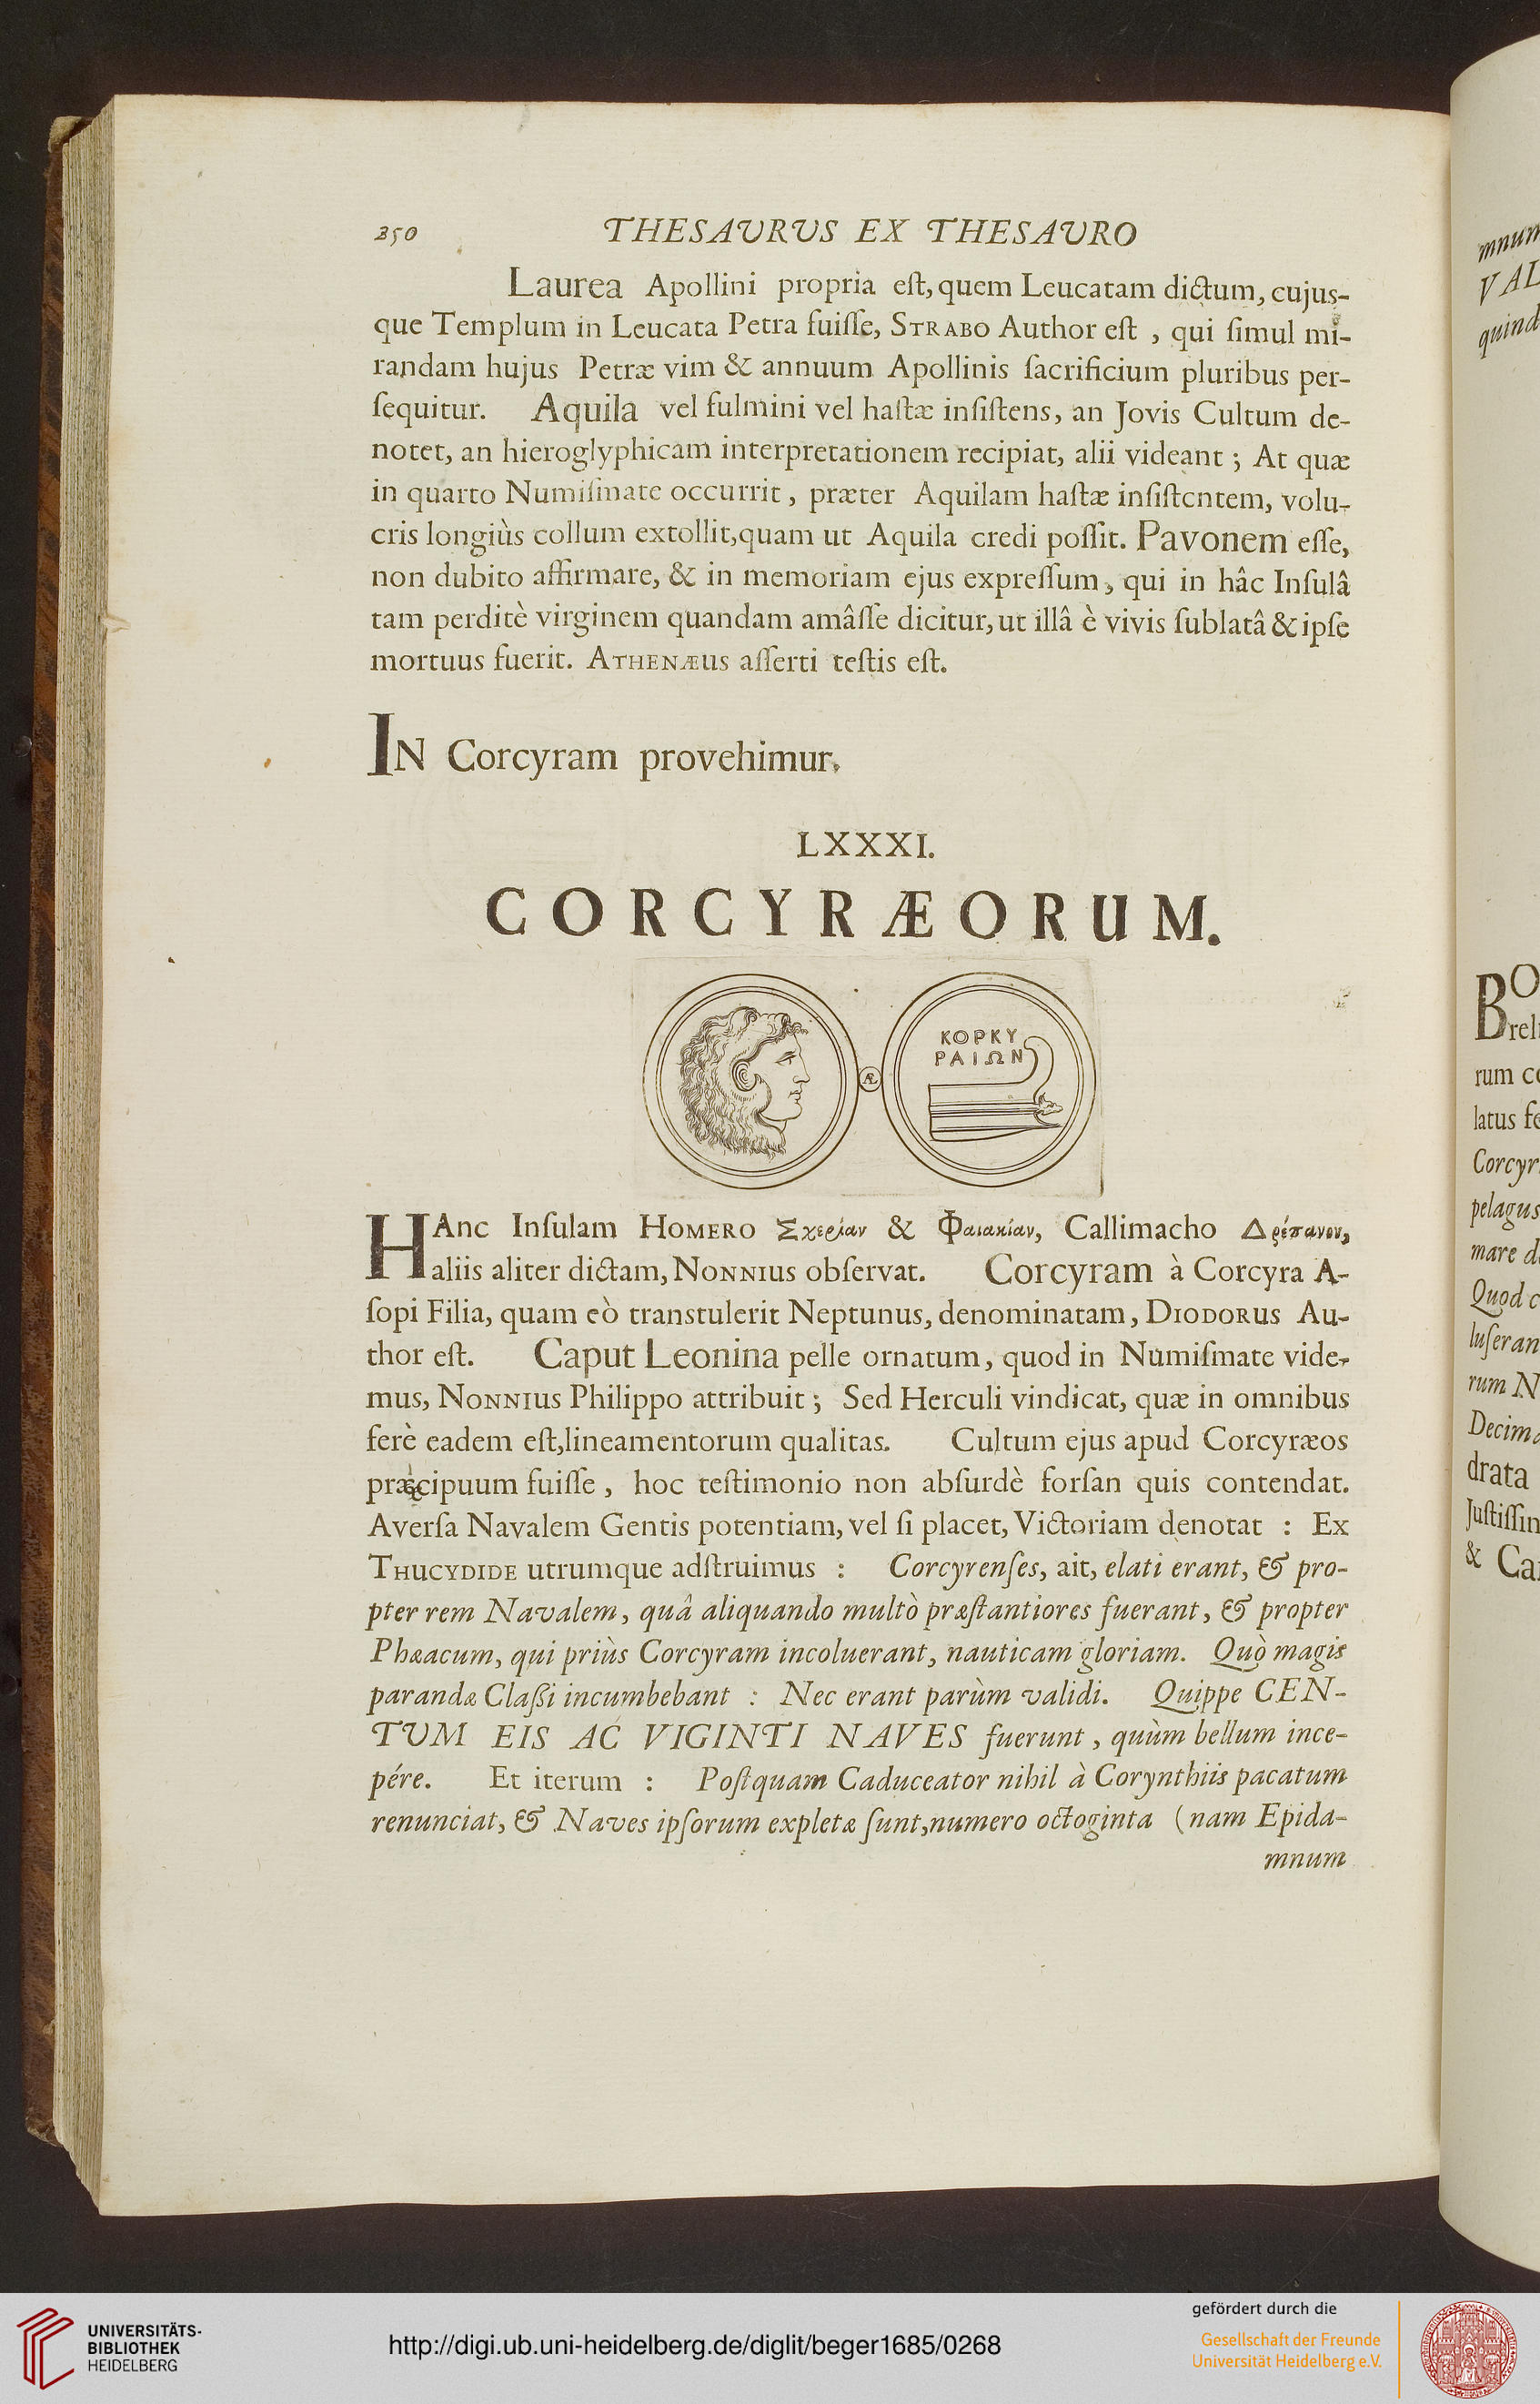 250 THESAURUS EX THESAURO
Laurea Apollini propria eſt, quem Leucatam dictum, cujus-
que Templum in Leucata Petra fuiſſe, STRABO Author eſt , qui ſimul mi-
randam hujus Petræ vim & annuum Apollinis ſacrificium pluribus per-
ſequitur. Aquila vel fulmini vel haſtæ inſiſtens, an Jovis Cultum de-
notet, an hieroglyphicam interpretationem recipiat, alii videant ; At quæ
in quarto Numiſmate occurrit , præter Aquilam haſtæ inſiſtentem, volu-
cris longiùs collum extollit,quam ut Aquila credi poſſit. Pavonem eſſe,
non dubito affirmare, & in memoriam ejus expreſſum , qui in hâc Inſulâ
tam perditè virginem quandam amâſſe dicitur, ut illâ è vivis ſublatâ & ipſe
mortuus fuerit. ATHENÆUS aſſerti teſtis eſt.
IN Corcyram provehimur.
LXXXI.
CORCYRÆORUM.
ΚΟΡΚΥ
ΡΑΙΩΝ
Æ
HAnc Inſulam HOMERO Σχερίαν & Φαιακίαν, Callimacho Δρέπανον,
aliis aliter dictam, NONNIUS obſervat. Corcyram à Corcyra A-
ſopi Filia, quam eò transtulerit Neptunus, denominatam, DIODORUS Au-
thor eſt. Caput Leonina pelle ornatum, quod in Numiſmate vide-
mus, NONNIUS Philippo attribuit ; Sed Herculi vindicat, quæ in omnibus
ferè eadem eſt,lineamentorum qualitas. Cultum ejus apud Corcyræos
præcipuum fuiſſe , hoc teſtimonio non abſurdè forſan quis contendat.
Averſa Navalem Gentis potentiam, vel ſi placet, Victoriam denotat : Ex
THUCYDIDE utrumque adſtruimus : Corcyrenſes, ait, elati erant, & pro-
pter rem Navalem, quâ aliquando multò præſtantiores fuerant, & propter
Phæacum, qui priùs Corcyram incoluerant, nauticam gloriam. Quò magis
parandæ Claßi incumbebant : Nec erant parùm validi. Quippe CEN-
TUM EIS AC VIGINTI NAVES fuerunt , quùm bellum ince-
pére. Et iterum : Poſtquam Caduceator nihil à Corynthiis pacatum
renunciat, & Naves ipſorum expletæ ſunt,numero octoginta (nam Epida-
mnum
mnum
VAL
quind
BO
rel
rum c
latus fe
Corcyr
pelagus
mare d
Quod c
luſeran
rum N
Decima
drata
Juſtiſſin
& Ca
UNIVERSITÄTS-
BIBLIOTHEK
HEIDELBERG
http://digi.ub.uni-heidelberg.de/diglit/beger1685/0268
gefördert durch die
Gesellschaft der Freunde
Universität Heidelberg e.V.